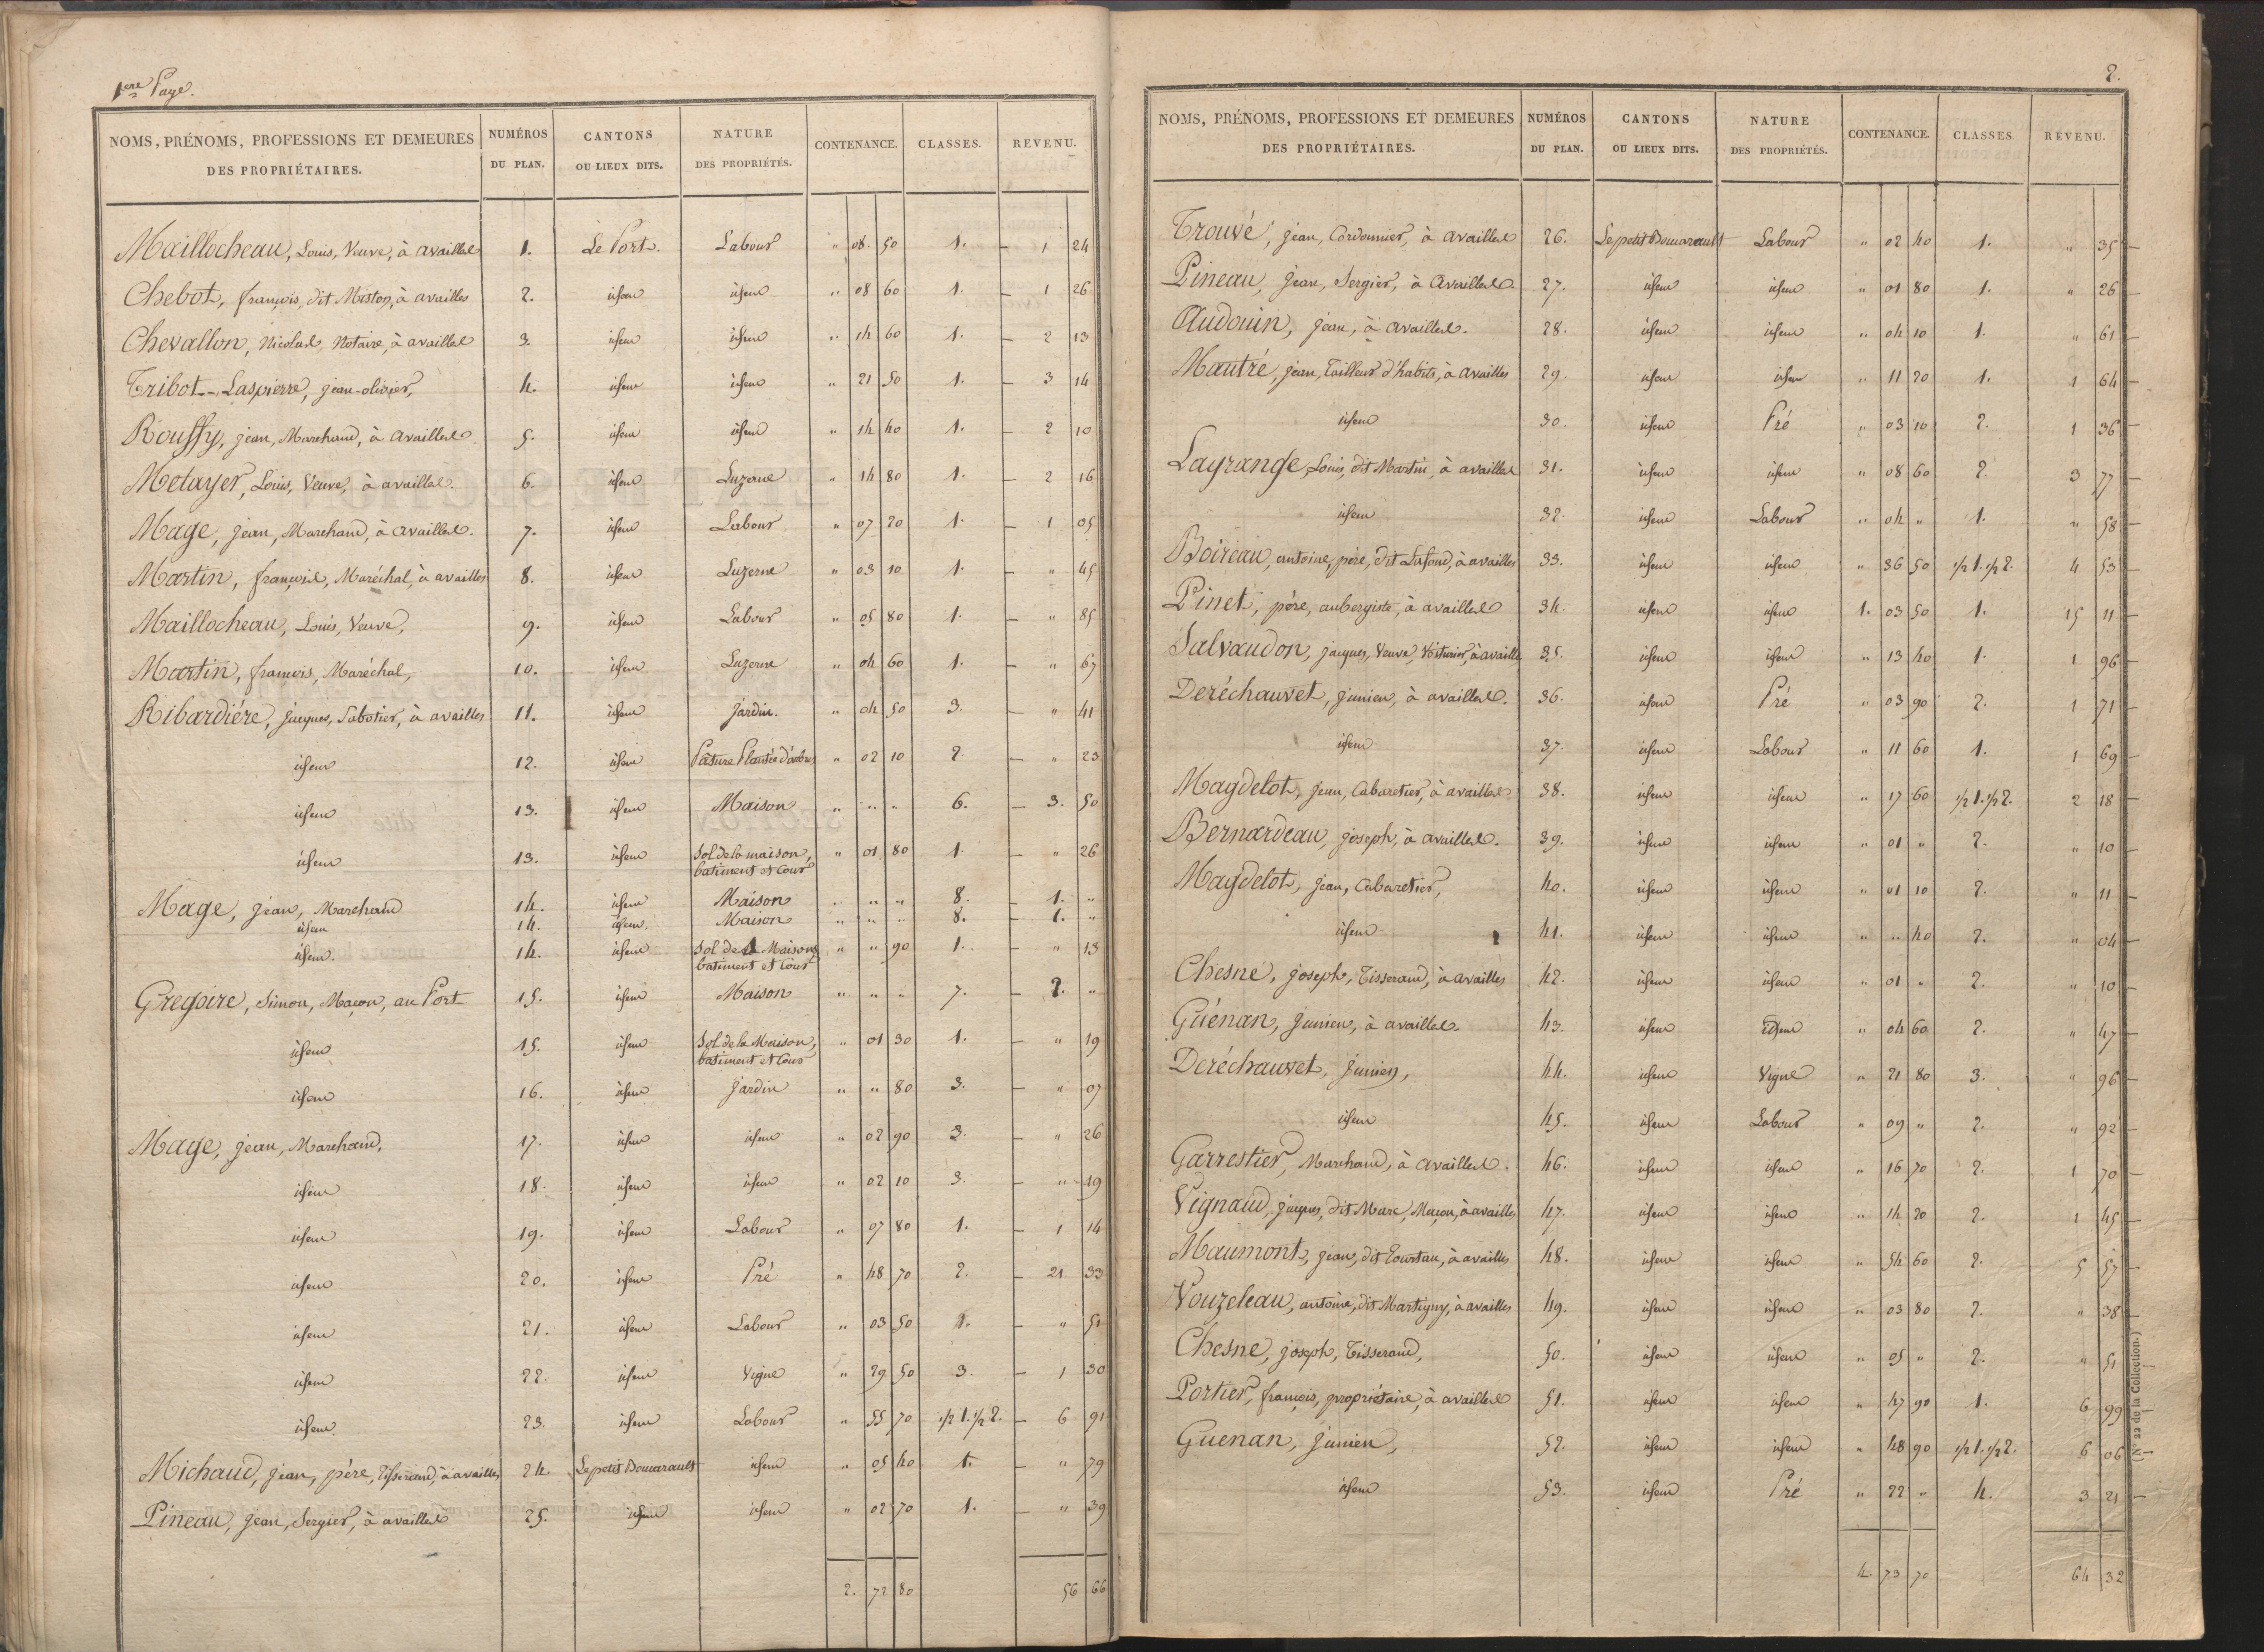 1ere Page.
NOMS, PRÉNOMS, PROFESSIONS ET DEMEURES DES PROPRIÉTAIRES. NUMÉROS DU PLAN. CANTONS OU LIEUX DITS. NATURE DES PROPRIÉTÉS. CONTENANCE. CLASSES. REVENU.
Maillocheau, Louis, Veuve, à availles 1. Le Port. Labour " 08 50 1. 1 24
Chebot, françois, dit Miston, à availles 2. idem idem " 08 60 1. 1 26
Chevallon, Nicolas, Notaire, à availles 3. idem idem " 14 60 1. 2 13
Tribot-Laspierre, jean-olivier, 4. idem idem " 21 50 1. 3 14
Rouffy, jean, Marchand, à availles 5. idem idem " 14 40 1. 2 10
Metayer, Louis, Veuve, à availles. 6. idem Luzerne " 14 80 1. 2 16
Mage, jean, Marchand, à availles. 7. idem Labour " 07 20 1. 1 05
Martin, françois, Maréchal, à availles 8. idem Luzerne " 03 10 1. " 45
Maillocheau, Louis, Veuve, 9. idem Labour " 05 80 1. " 85
Martin, francois, Maréchal, 10. idem Luzerne " 04 60 1. " 67
Ribardiére, jacques, Sabotier, à availles 11. idem jardin. " 04 50 3. " 41
idem 12. idem Pâture Plantée d'arbres " 02 10 2 " 23
idem 13. idem Maison " " " 6. 3. 50
idem 13. idem Sol de la maison, batiment et Cour " 01 80 1 " 26
Mage, jean, Marchand 14. idem Maison " " " 8. 1. "
idem 14. idem. Maison " " " 8. 1. "
idem. 14. idem Sol de Maisons batiment et Cour " " 90 1. " 13
Gregoire, Simon, Maçon, au Port 15. idem Maison " " " 7. 2. "
idem 15. idem Sol de la Maison, batiment et Cour " 01 30 1. " 19
idem 16. idem jardin " " 80 3. " 07
Mage, jean, Marchand, 17. idem idem " 02 90 3. " 26
idem 18. idem idem " 02 10 3. " 19
idem 19. idem Labour " 07 80 1. 1 14
idem 20. idem Pré " 48 70 2. 21 33
idem 21. idem Labour " 03 50 1. " 51
idem 22. idem Vigne " 29 50 3. 1 30
idem 23. idem Labour " 55 70 1/2 1. 1/2 2. 6 91
Michaud, jean, père, Tisserand, à availles 24. Le petit Bomarault idem " 05 40 1. " 79
Pineau, jean, Sergier, à availles 25. idem idem " 02 70 1. " 39
2. 72 80 56 66
2.
NOMS, PRÉNOMS, PROFESSIONS ET DEMEURES DES PROPRIÉTAIRES. NUMÉROS DU PLAN. CANTONS OU LIEUX DITS. NATURE DES PROPRIÉTÉS. CONTENANCE. CLASSES. REVENU.
Trouvé, jean, Cordonnier, à availles 26. Le petit Bomarault Labour " 02 40 1. " 35
Pineau, jean, Sergier, à availles. 27. idem idem " 01 80 1. " 26
Audouin, jean, à availles. 28. idem idem " 04 10 1. " 61
Mautré, jean, Tailleur d'habits, à availles 29. idem idem " 11 20 1. 1 64
idem 30. idem Pré " 03 10 2. 1 36
Lagrange, Louis, dit Martin, à availles 31. idem idem " 08 60 2. 3 77
idem 32. idem Labour " 04 " 1. " 58
Boireau, antoine, père, dit Lafond, à availles 33. idem idem " 36 50 1/2 1. 1/2 2. 4 53
Pinet, père, aubergiste, à availles 34. idem idem 1. 03 50 1. 15 11
Salvaudon, jacques, Veuve, Voiturier, à availles 35. idem idem " 13 40 1. 1 96
Deréchauvet, junien, à availles. 36. idem Pré " 03 90 2. 1 71
idem 37. idem Labour " 11 60 1. 1 69
Magdelot, jean, Cabaretier, à availles. 38. idem idem " 17 60 1/2 1. 1/2 2. 2 18
Bernardeau, joseph, à availles. 39. idem idem " 01 " 2. " 10
Magdelot, jean, Cabaretier, 40. idem idem " 01 10 2. " 11
idem 41. idem idem " " 40 2. " 04
Chesne, joseph, Tisserand, à availles 42. idem idem " 01 " 2. " 10
Guénan, junien, à availles. 43. idem idem " 04 60 2. " 47
Deréchauvet, junien, 44. idem Vigne " 21 80 3. " 96
idem 45. idem Labour " 09 " 2. " 92
Garrestier, Marchand, à availles. 46. idem idem " 16 70 2. 1 70
Vignaud, jacques, dit Marc, Maçon, à availles 47. idem idem " 14 20 2. 1 45
Maumont, jean, dit Tourtau, à availles 48. idem idem " 54 60 2. 5 57
Vouzeleau, antoine, dit Martigny, à availles 49. idem idem " 03 80 2. " 38
Chesne, joseph, Tisserand, 50. idem idem " 05 " 2. " 51
Portier, françois, propriétaire, à availles 51. idem idem " 47 90 1. 6 99
Guenan, junien, 52. idem idem " 48 90 1/2 1. 1/2 2. 6 06
idem 53. idem Pré " 22 " 4. 3 21
4. 73 70 64 32
(N° 22 de la Collection.)